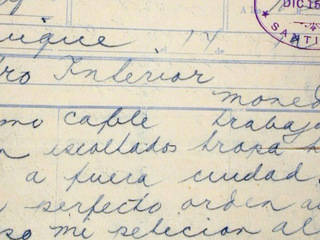 DIC 15
SANTI
nique el 14 de
ro Interior
moned
mo cable trabaja
n escoltados tropa h
a fuera ciudad
perfecto orden ac
so mi peticion al